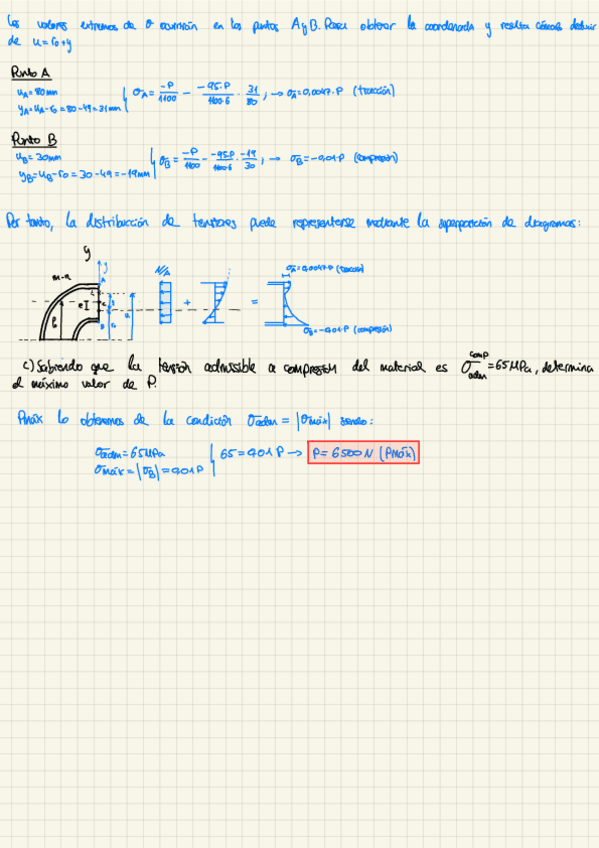 Los valores extremos de σ ocurrirán en los puntos A y B. Para obtener la coordenada y resulta cómodo deducir
de u = r₀+y
Punto A
u_A = 80mm
y_A = u_A - r₀ = 80 - 49 = 31mm
σ_A = -P/1100 - -95·P/1100·6 · 31/80 ; → σ_A = 0,0047·P (tracción)
Punto B
u_B = 30mm
y_B = u_B - r₀ = 30 - 49 = -19mm
σ_B = -P/1100 - -95·P/1100·6 · -19/30 ; → σ_B = -0,01·P (compresión)
Por tanto, la distribución de tensiones puede representarse mediante la superposición de diagramas:
y
y
m-n
A
e
B
r₀
u
N/A
+
=
σ_A = 0,0047·P (tracción)
σ_B = -0,01·P (compresión)
c) Sabiendo que la tensión admisible a compresión del material es σ_adm^comp = 65 MPa, determina
el máximo valor de P.
Pmáx lo obtenemos de la condición σadm = |σmáx| siendo:
σadm = 65 MPa
σmáx = |σ_B| = 0,01P
65 = 0,01 P → P = 6500 N (Pmáx)